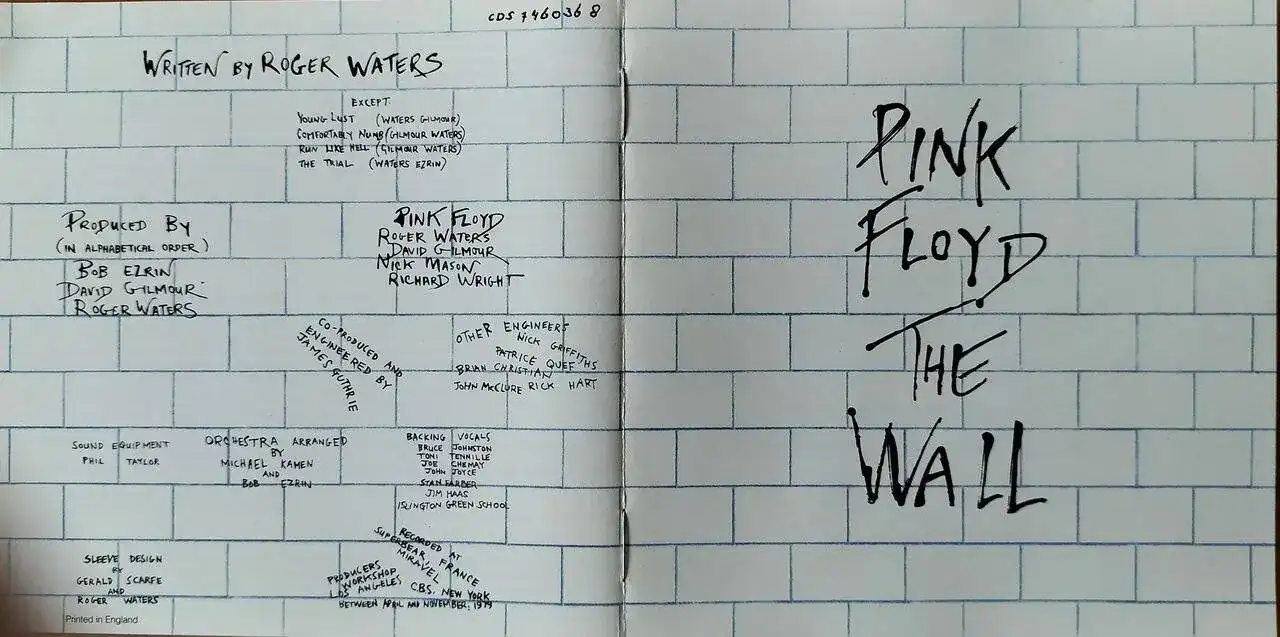 CDS 746036 8
WRITTEN BY ROGER WATERS
EXCEPT
YOUNG LUST (WATERS GILMOUR)
COMFORTABLY NUMB (GILMOUR WATERS)
RUN LIKE HELL (GILMOUR WATERS)
THE TRIAL (WATERS EZRIN)
PRODUCED BY
(IN ALPHABETICAL ORDER)
BOB EZRIN
DAVID GILMOUR
ROGER WATERS
PINK FLOYD
ROGER WATERS
DAVID GILMOUR
NICK MASON
RICHARD WRIGHT
CO-PRODUCED AND
ENGINEERED BY
JAMES GUTHRIE
OTHER ENGINEERS
NICK GRIFFITHS
PATRICE QUEF
BRIAN CHRISTIAN
JOHN McCLURE RICK HART
SOUND EQUIPMENT
PHIL TAYLOR
ORCHESTRA ARRANGED
BY
MICHAEL KAMEN
AND
BOB EZRIN
BACKING VOCALS
BRUCE JOHNSTON
TONI TENNILLE
JOE CHEMAY
JOHN JOYCE
STAN FARBER
JIM HAAS
ISLINGTON GREEN SCHOOL
SLEEVE DESIGN
BY
GERALD SCARFE
AND
ROGER WATERS
RECORDED AT
SUPERBEAR FRANCE
MIRAVEL
PRODUCERS
WORKSHOP
LOS ANGELES CBS, NEW YORK
BETWEEN APRIL AND NOVEMBER, 1979
Printed in England
PINK
FLOYD
THE
WALL